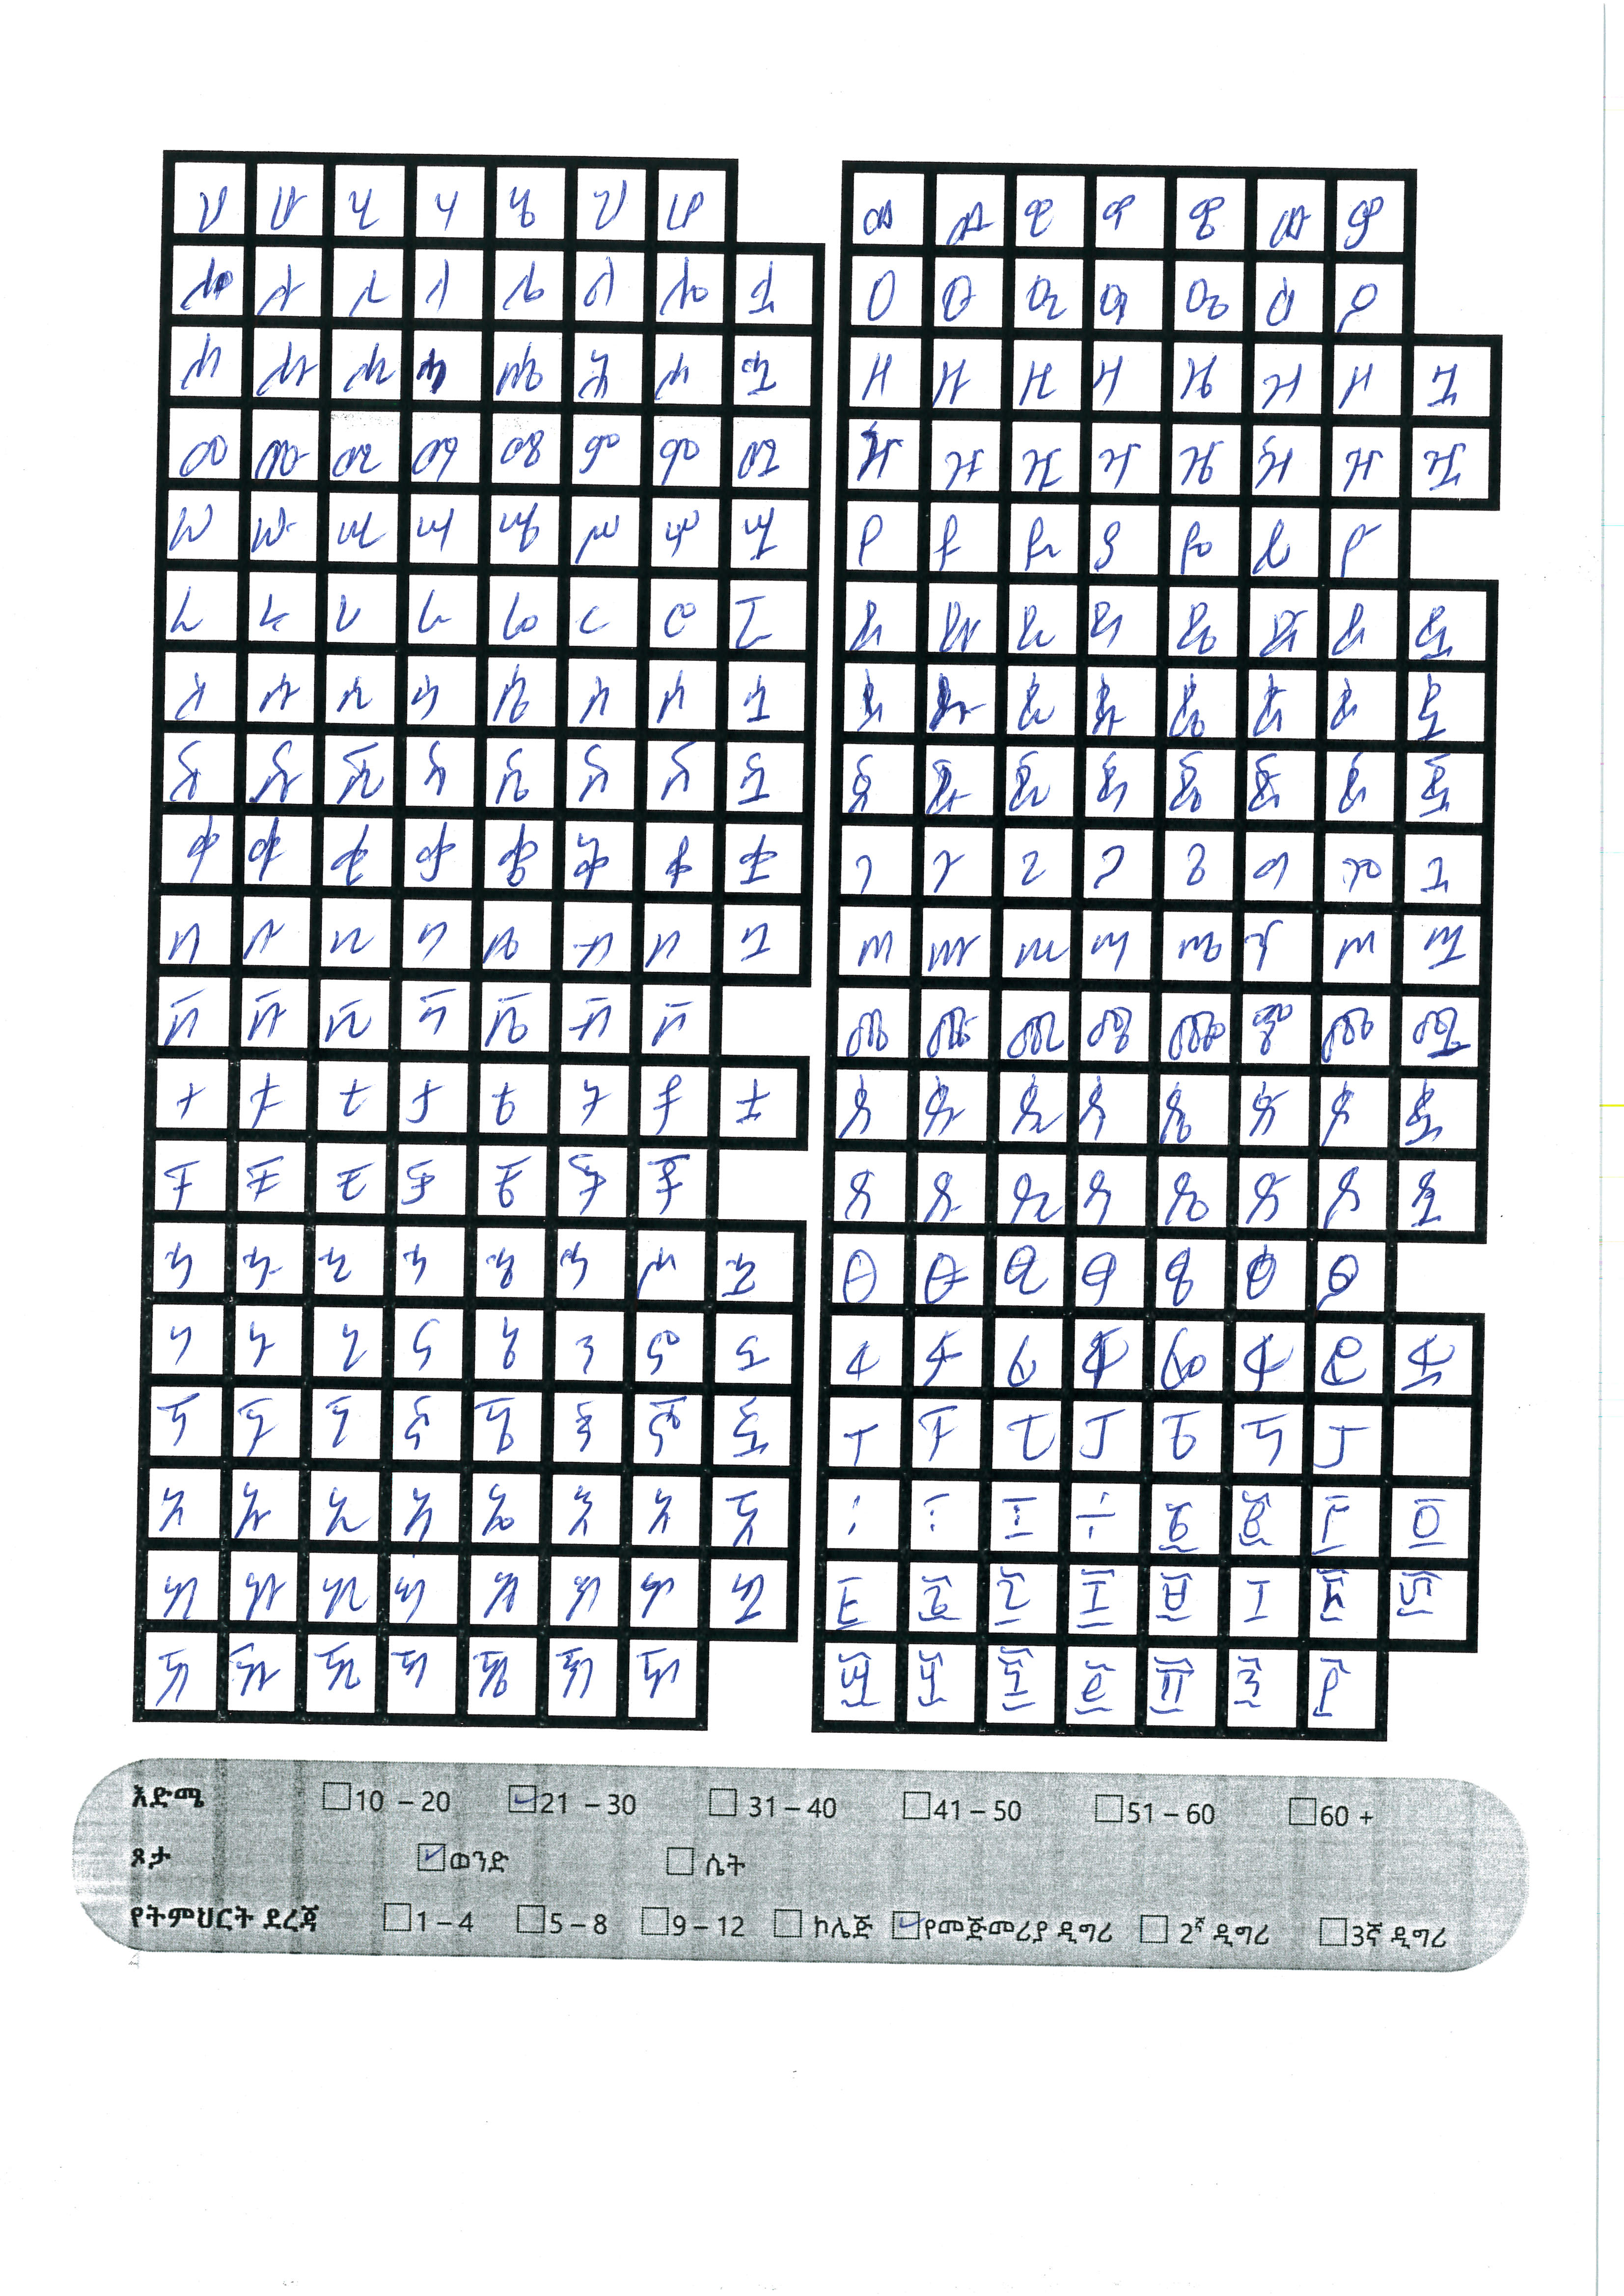 ሀ ሁ ሂ ሃ ሄ ህ ሆ
ለ ሉ ሊ ላ ሌ ል ሎ ሏ
ሐ ሑ ሒ ሓ ሔ ሕ ሖ ሗ
መ ሙ ሚ ማ ሜ ም ሞ ሟ
ሠ ሡ ሢ ሣ ሤ ሥ ሦ ሧ
ረ ሩ ሪ ራ ሬ ር ሮ ሯ
ሰ ሱ ሲ ሳ ሴ ስ ሶ ሷ
ሸ ሹ ሺ ሻ ሼ ሽ ሾ ሿ
ቀ ቁ ቂ ቃ ቄ ቅ ቆ ቋ
በ ቡ ቢ ባ ቤ ብ ቦ ቧ
ቨ ቩ ቪ ቫ ቬ ቭ ቮ
ተ ቱ ቲ ታ ቴ ት ቶ ቷ
ቸ ቹ ቺ ቻ ቼ ች ቾ
ኀ ኁ ኂ ኃ ኄ ኅ ኆ ኋ
ነ ኑ ኒ ና ኔ ን ኖ ኗ
ኘ ኙ ኚ ኛ ኜ ኝ ኞ ኟ
አ ኡ ኢ ኣ ኤ እ ኦ ኧ
ከ ኩ ኪ ካ ኬ ክ ኮ ኳ
ኸ ኹ ኺ ኻ ኼ ኽ ኾ
ወ ዉ ዊ ዋ ዌ ው ዎ
ዐ ዑ ዒ ዓ ዔ ዕ ዖ
ዘ ዙ ዚ ዛ ዜ ዝ ዞ ዟ
ዠ ዡ ዢ ዣ ዤ ዥ ዦ ዧ
የ ዩ ዪ ያ ዬ ይ ዮ
ደ ዱ ዲ ዳ ዴ ድ ዶ ዷ
ዸ ዹ ዺ ዻ ዼ ዽ ዾ ዿ
ጀ ጁ ጂ ጃ ጄ ጅ ጆ ጇ
ገ ጉ ጊ ጋ ጌ ግ ጎ ጓ
ጠ ጡ ጢ ጣ ጤ ጥ ጦ ጧ
ጨ ጩ ጪ ጫ ጬ ጭ ጮ ጯ
ጰ ጱ ጲ ጳ ጴ ጵ ጶ ጷ
ጸ ጹ ጺ ጻ ጼ ጽ ጾ ጿ
ፀ ፁ ፂ ፃ ፄ ፅ ፆ
ፈ ፉ ፊ ፋ ፌ ፍ ፎ ፏ
ፐ ፑ ፒ ፓ ፔ ፕ ፖ
፡ ፣ ፤ ÷ ፩ ፪ ፫ ፬
፭ ፮ ፯ ፰ ፱ ፲ ፳ ፴
፵ ፶ ፷ ፸ ፹ ፺ ፻
እድሜ 10 – 20 21 – 30 31 – 40 41 – 50 51 – 60 60 +
ጾታ ወንድ ሴት
የትምህርት ደረጃ 1 – 4 5 – 8 9 – 12 ኮሌጅ የመጀመሪያ ዲግሪ 2ኛ ዲግሪ 3ኛ ዲግሪ